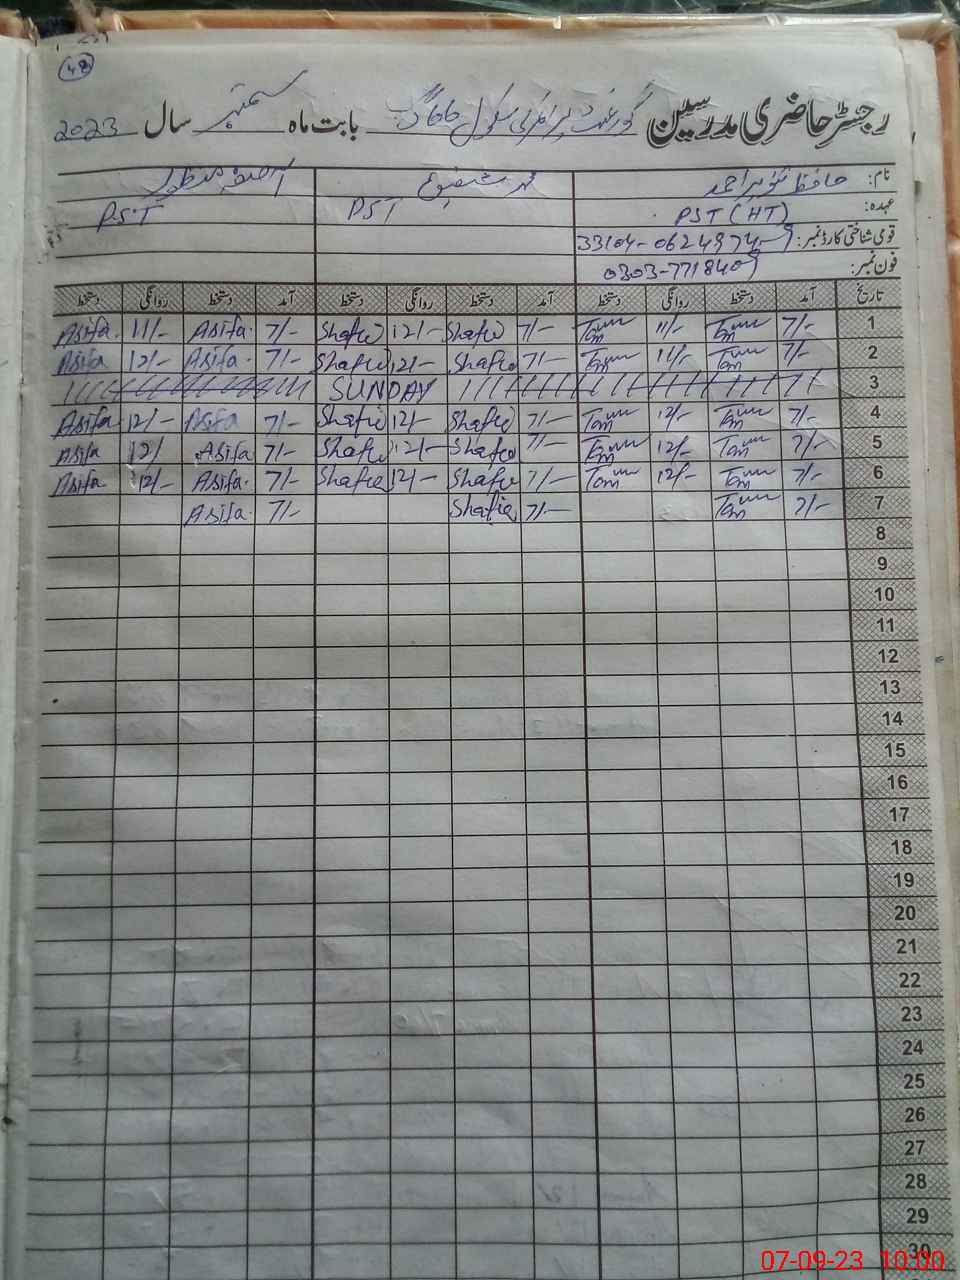 48
رجسٹر حاضری مدرسین گورنمنٹ پرائمری سکول 66 گ ب بابت ماہ ستمبر سال 2023
نام: حافظ تنویر احمد محمد شفیع آصفہ منظور
عہدہ: PST (HT) PST PST
قومی شناختی کارڈ نمبر: 33104-0624974-9
فون نمبر: 0303-7718409
تاریخ آمد دستخط روانگی دستخط آمد دستخط روانگی دستخط آمد دستخط روانگی دستخط
1 7/- 11/- 7/- Shafie 12/- Shafie 7/- Asifa 11/- Asifa
2 7/- 11/- 7/- Shafie 12/- Shafie 7/- Asifa 12/- Asifa
3 SUNDAY
4 7/- 12/- 7/- Shafie 12/- Shafie 7/- Asifa 12/- Asifa
5 7/- 12/- 7/- Shafie 12/- Shafie 7/- Asifa 12/ Asifa
6 7/- 12/- 7/- Shafie 12/- Shafie 7/- Asifa 12/- Asifa
7 7/- 7/- Shafie 7/- Asifa
8
9
10
11
12
13
14
15
16
17
18
19
20
21
22
23
24
25
26
27
28
29
30
07-09-23 10:00